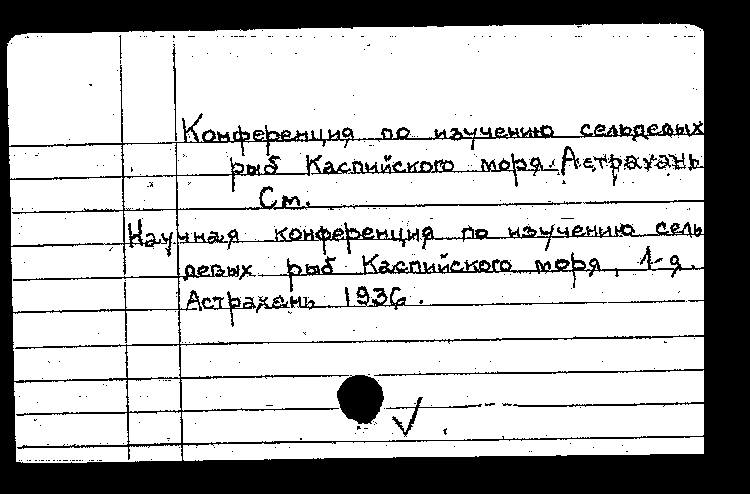 Конференция по изучению сельдевых
рыб Каспийского моря. Астрахань
См.
Научная конференция по изучению сель
девых рыб Каспийского моря, 1-я.
Астрахань 1936.